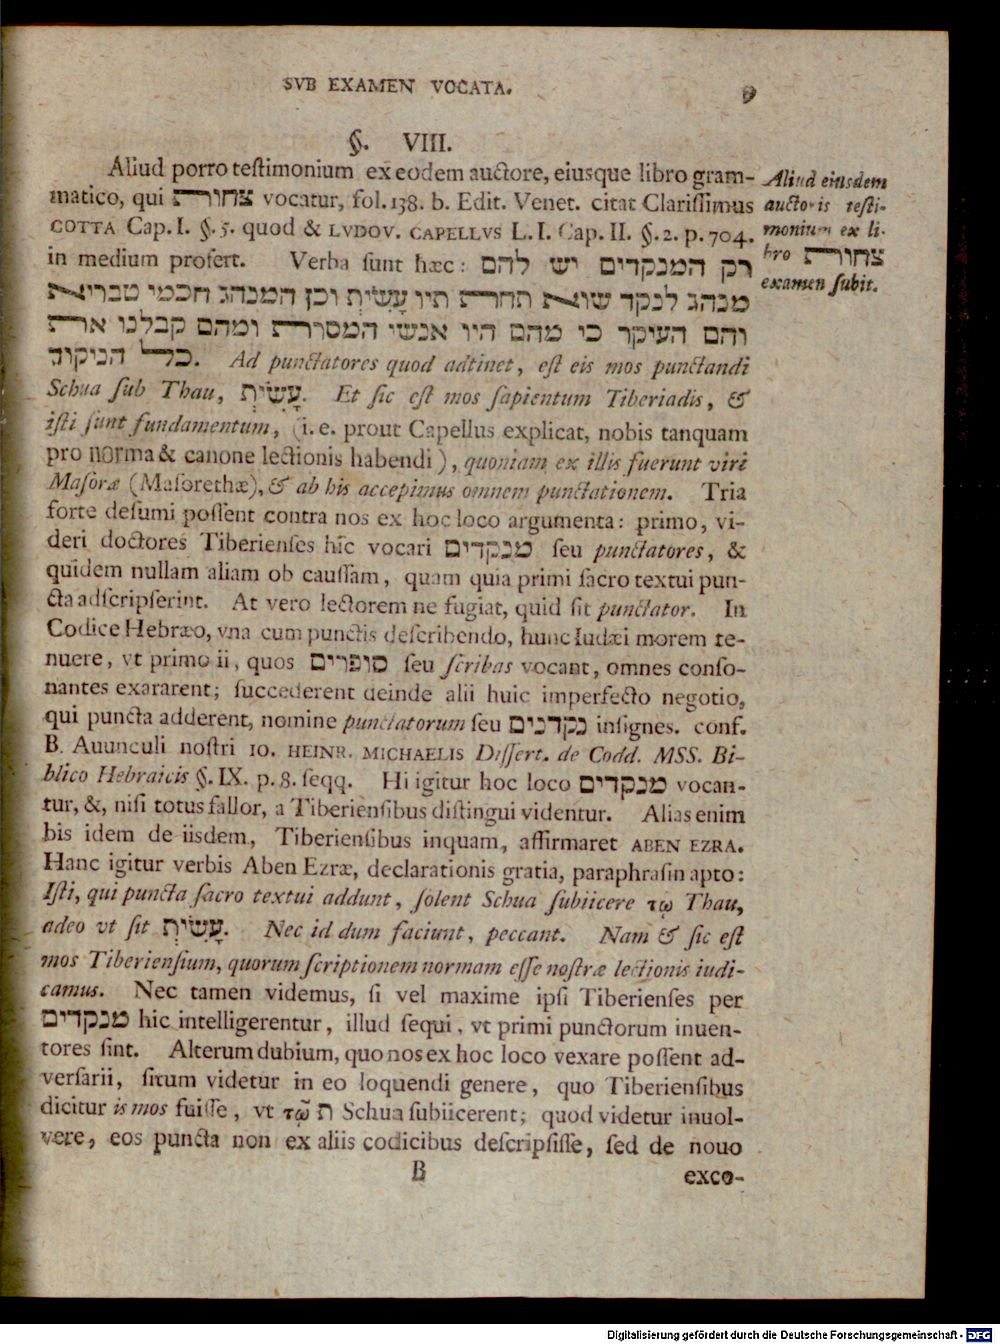 SVB EXAMEN VOCATA. 9
§. VIII.
Aliud porro teſtimonium ex eodem auctore, eiusque libro gram-
matico, qui צחורת vocatur, fol. 138. b. Edit. Venet. citat Clariſſimus
COTTA Cap. I. §. 5. quod & LVDOV. CAPELLVS L. I. Cap. II. §. 2. p. 704.
in medium profert. Verba ſunt hæc: רק המנקדים יש להם
מנהג לנקד שוא תחת תיו עָשִׂיתְ וכן המנהג חכמי טבריא
והם העיקר כי מהם היו אנשי המסורת ומהם קבלנו את
כל הניקוד. Ad punctatores quod adtinet, eſt eis mos punctandi
Schua ſub Thau, עָשִׂיתְ. Et ſic eſt mos ſapientum Tiberiadis, &
iſti ſunt fundamentum, (i. e. prout Capellus explicat, nobis tanquam
pro norma & canone lectionis habendi), quoniam ex illis fuerunt viri
Maſoræ (Maſorethæ), & ab his accepimus omnem punctationem. Tria
forte deſumi poſſent contra nos ex hoc loco argumenta: primo, vi-
deri doctores Tiberienſes hic vocari מנקדים ſeu punctatores, &
quidem nullam aliam ob cauſſam, quam quia primi ſacro textui pun-
cta adſcripſerint. At vero lectorem ne fugiat, quid ſit punctator. In
Codice Hebræo, vna cum punctis deſcribendo, hunc Iudæi morem te-
nuere, vt primo ii, quos סופרים ſeu ſcribas vocant, omnes conſo-
nantes exararent; ſuccederent deinde alii huic imperfecto negotio,
qui puncta adderent, nomine punctatorum ſeu נקדנים inſignes. conf.
B. Auunculi noſtri IO. HEINR. MICHAELIS Diſſert. de Codd. MSS. Bi-
blico Hebraicis §. IX. p. 8. ſeqq. Hi igitur hoc loco מנקדים vocan-
tur, &, niſi totus fallor, a Tiberienſibus diſtingui videntur. Alias enim
bis idem de iisdem, Tiberienſibus inquam, affirmaret ABEN EZRA.
Hanc igitur verbis Aben Ezræ, declarationis gratia, paraphraſin apto:
Iſti, qui puncta ſacro textui addunt, ſolent Schua ſubiicere τῳ Thau,
adeo vt ſit עָשִׂיתְ. Nec id dum faciunt, peccant. Nam & ſic eſt
mos Tiberienſium, quorum ſcriptionem normam eſſe noſtræ lectionis iudi-
camus. Nec tamen videmus, ſi vel maxime ipſi Tiberienſes per
מנקדים hic intelligerentur, illud ſequi, vt primi punctorum inuen-
tores ſint. Alterum dubium, quo nos ex hoc loco vexare poſſent ad-
verſarii, ſitum videtur in eo loquendi genere, quo Tiberienſibus
dicitur is mos fuiſſe, vt τῷ ת Schua ſubiicerent; quod videtur inuol-
vere, eos puncta non ex aliis codicibus deſcripſiſſe, ſed de nouo
B exco-
Aliud eiusdem
auctoris teſti-
monium ex li-
bro צחורת
examen ſubit.
Digitalisierung gefördert durch die Deutsche Forschungsgemeinschaft - DFG